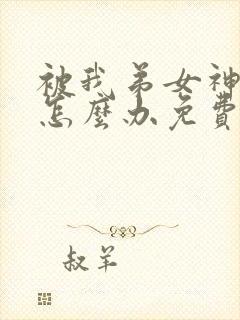 被我弟女神
怎麼办免費
叔羊